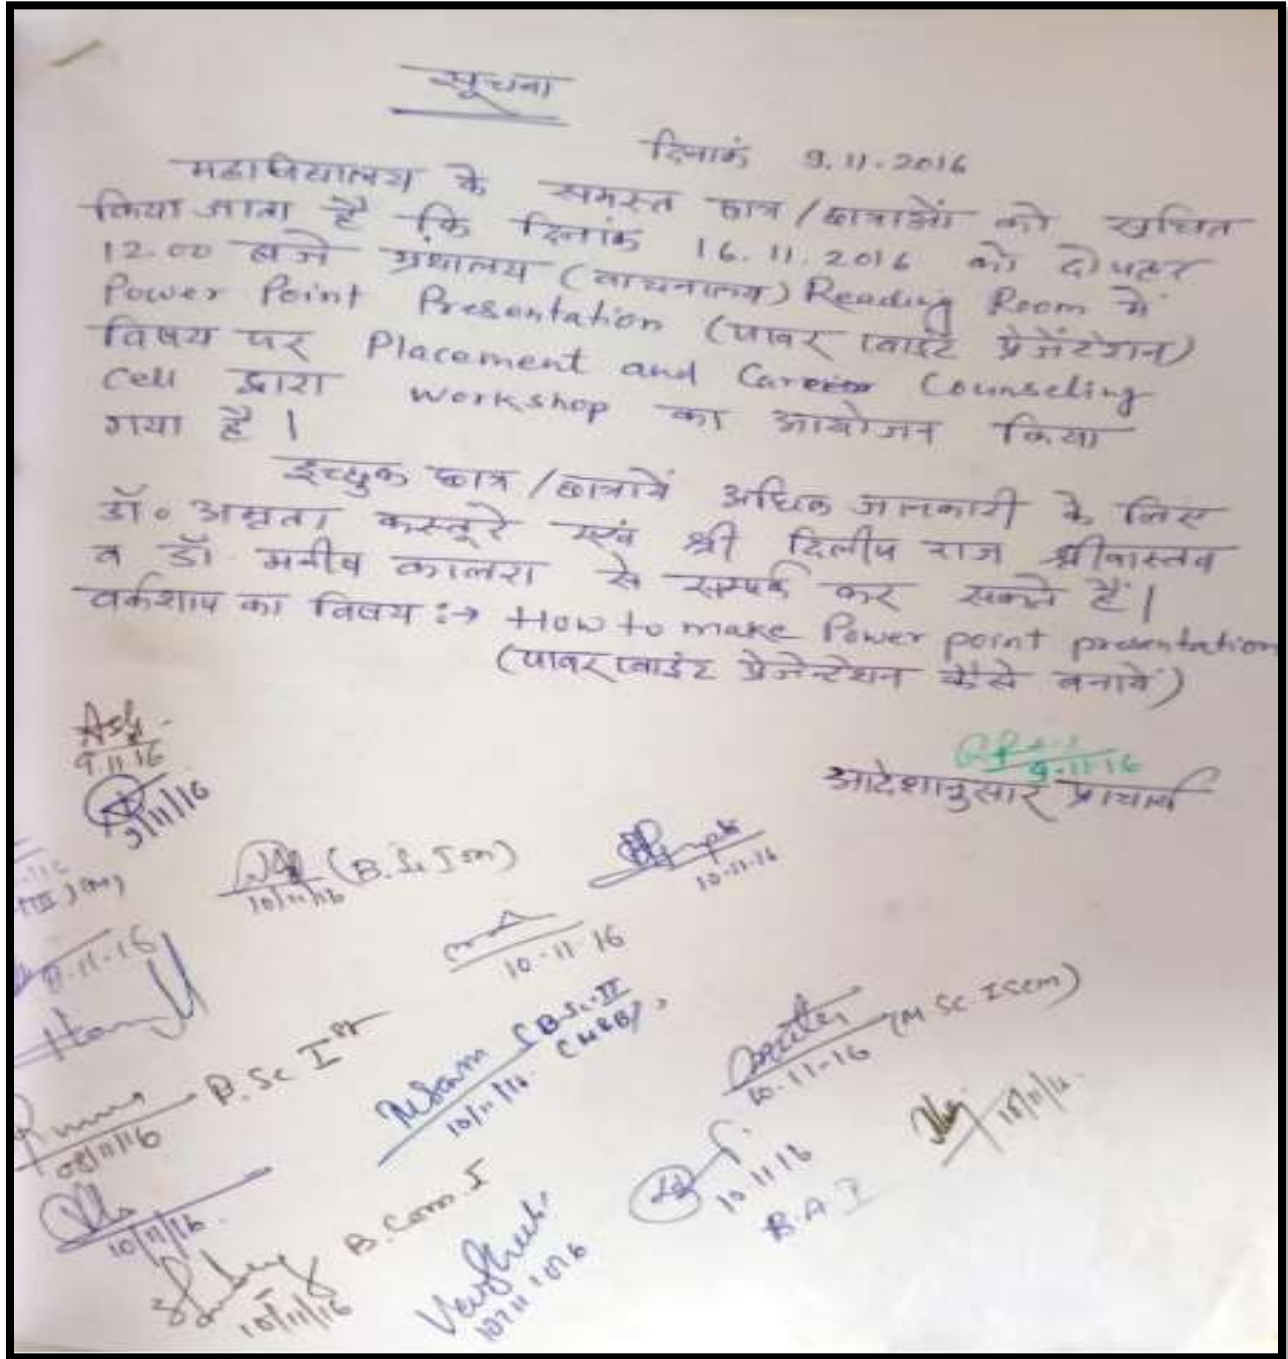 सूचना
दिनाकं 9.11.2016
महाविद्यालय के समस्त छात्र/छात्राओं को सूचित
किया जाता है कि दिनांक 16.11.2016 को दोपहर
12.00 बजे ग्रंथालय (वाचनालय) Reading Room में
Power Point Presentation (पावर प्वाईंट प्रेजेंटेशन)
विषय पर Placement and Career Counseling
Cell द्वारा workshop का आयोजन किया
गया है।
इच्छुक छात्र/छात्रायें अधिक जानकारी के लिए
डॉ० अमृता कस्तूरे एवं श्री दिलीप राज श्रीवास्तव
व डॉ. मनीष कालरा से सम्पर्क कर सकते हैं।
वर्कशाप का विषय :→ How to make Power point presentation
(पावर प्वाइंट प्रेजेन्टेशन कैसे बनायें)
9.11.16
9.11.16
आदेशानुसार प्राचार्य
9/11/16
(B.Sc I sem)
10/11/16
10.11.16
10-11-16
B.Sc I st
(B.Sc-II
10/11/16
(M.Sc. I sem)
10-11-16
10/11/16
10/11/16
10 11 16
B.A I
B.Com. I
10/11/16